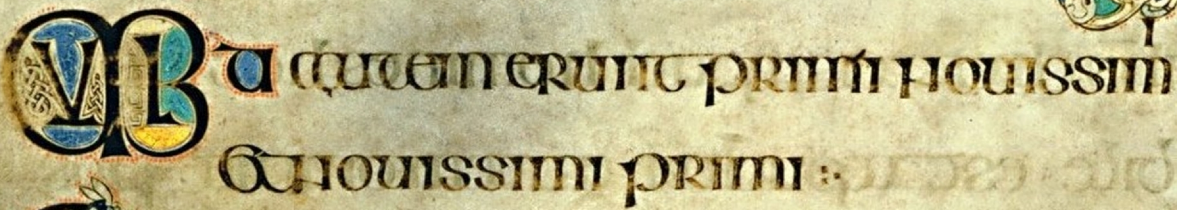 Multi autem erunt primi nouissimi
et nouissimi primi :·